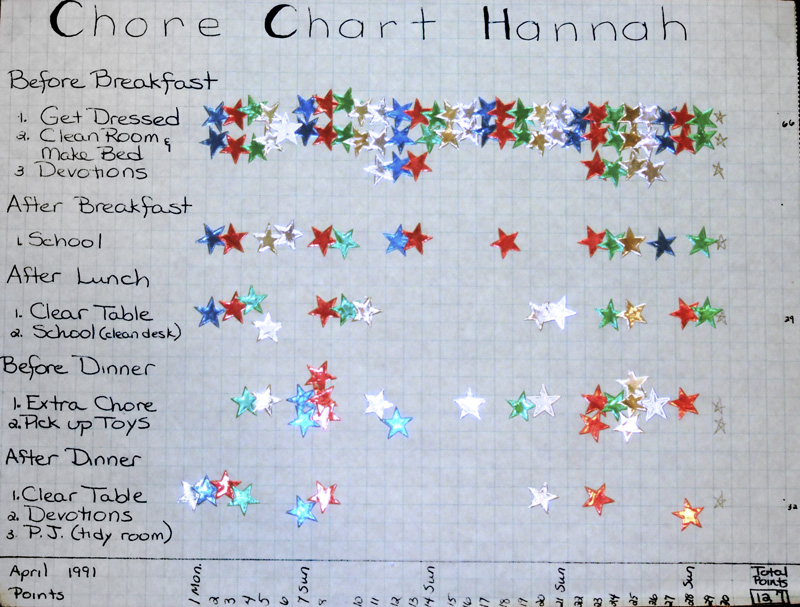 Chore Chart Hannah
Before Breakfast
1. Get Dressed
2. Clean Room &
Make Bed
3 Devotions
66
After Breakfast
1. School
After Lunch
1. Clear Table
2. School (clean desk)
29
Before Dinner
1. Extra Chore
2. Pick up Toys
After Dinner
1. Clear Table
2. Devotions
3. P.J. (tidy room)
32
April 1991
Points
1 Mon. 2 3 4 5 6 7 Sun 8 10 11 12 13 14 Sun 15 16 17 18 19 20 21 Sun 22 23 24 25 26 27 28 Sun 29
Total
Points
127